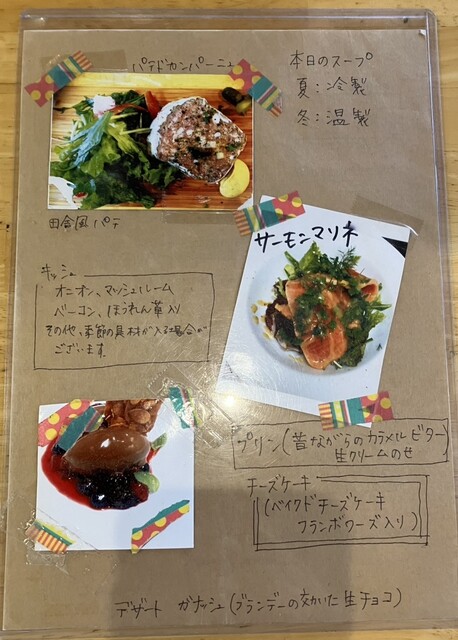 パテドカンパーニュ
本日のスープ
夏:冷製
冬:温製
田舎風パテ
サーモンマリネ
キッシュ
オニオン、マッシュルーム
ベーコン、ほうれん草入り
その他、季節の具材が入る場合が
ございます
プリン(昔ながらのカラメルビター)
生クリームのせ
チーズケーキ
(ベイクドチーズケーキ
フランボワーズ入り)
デザート ガナッシュ(ブランデーの効いた生チョコ)